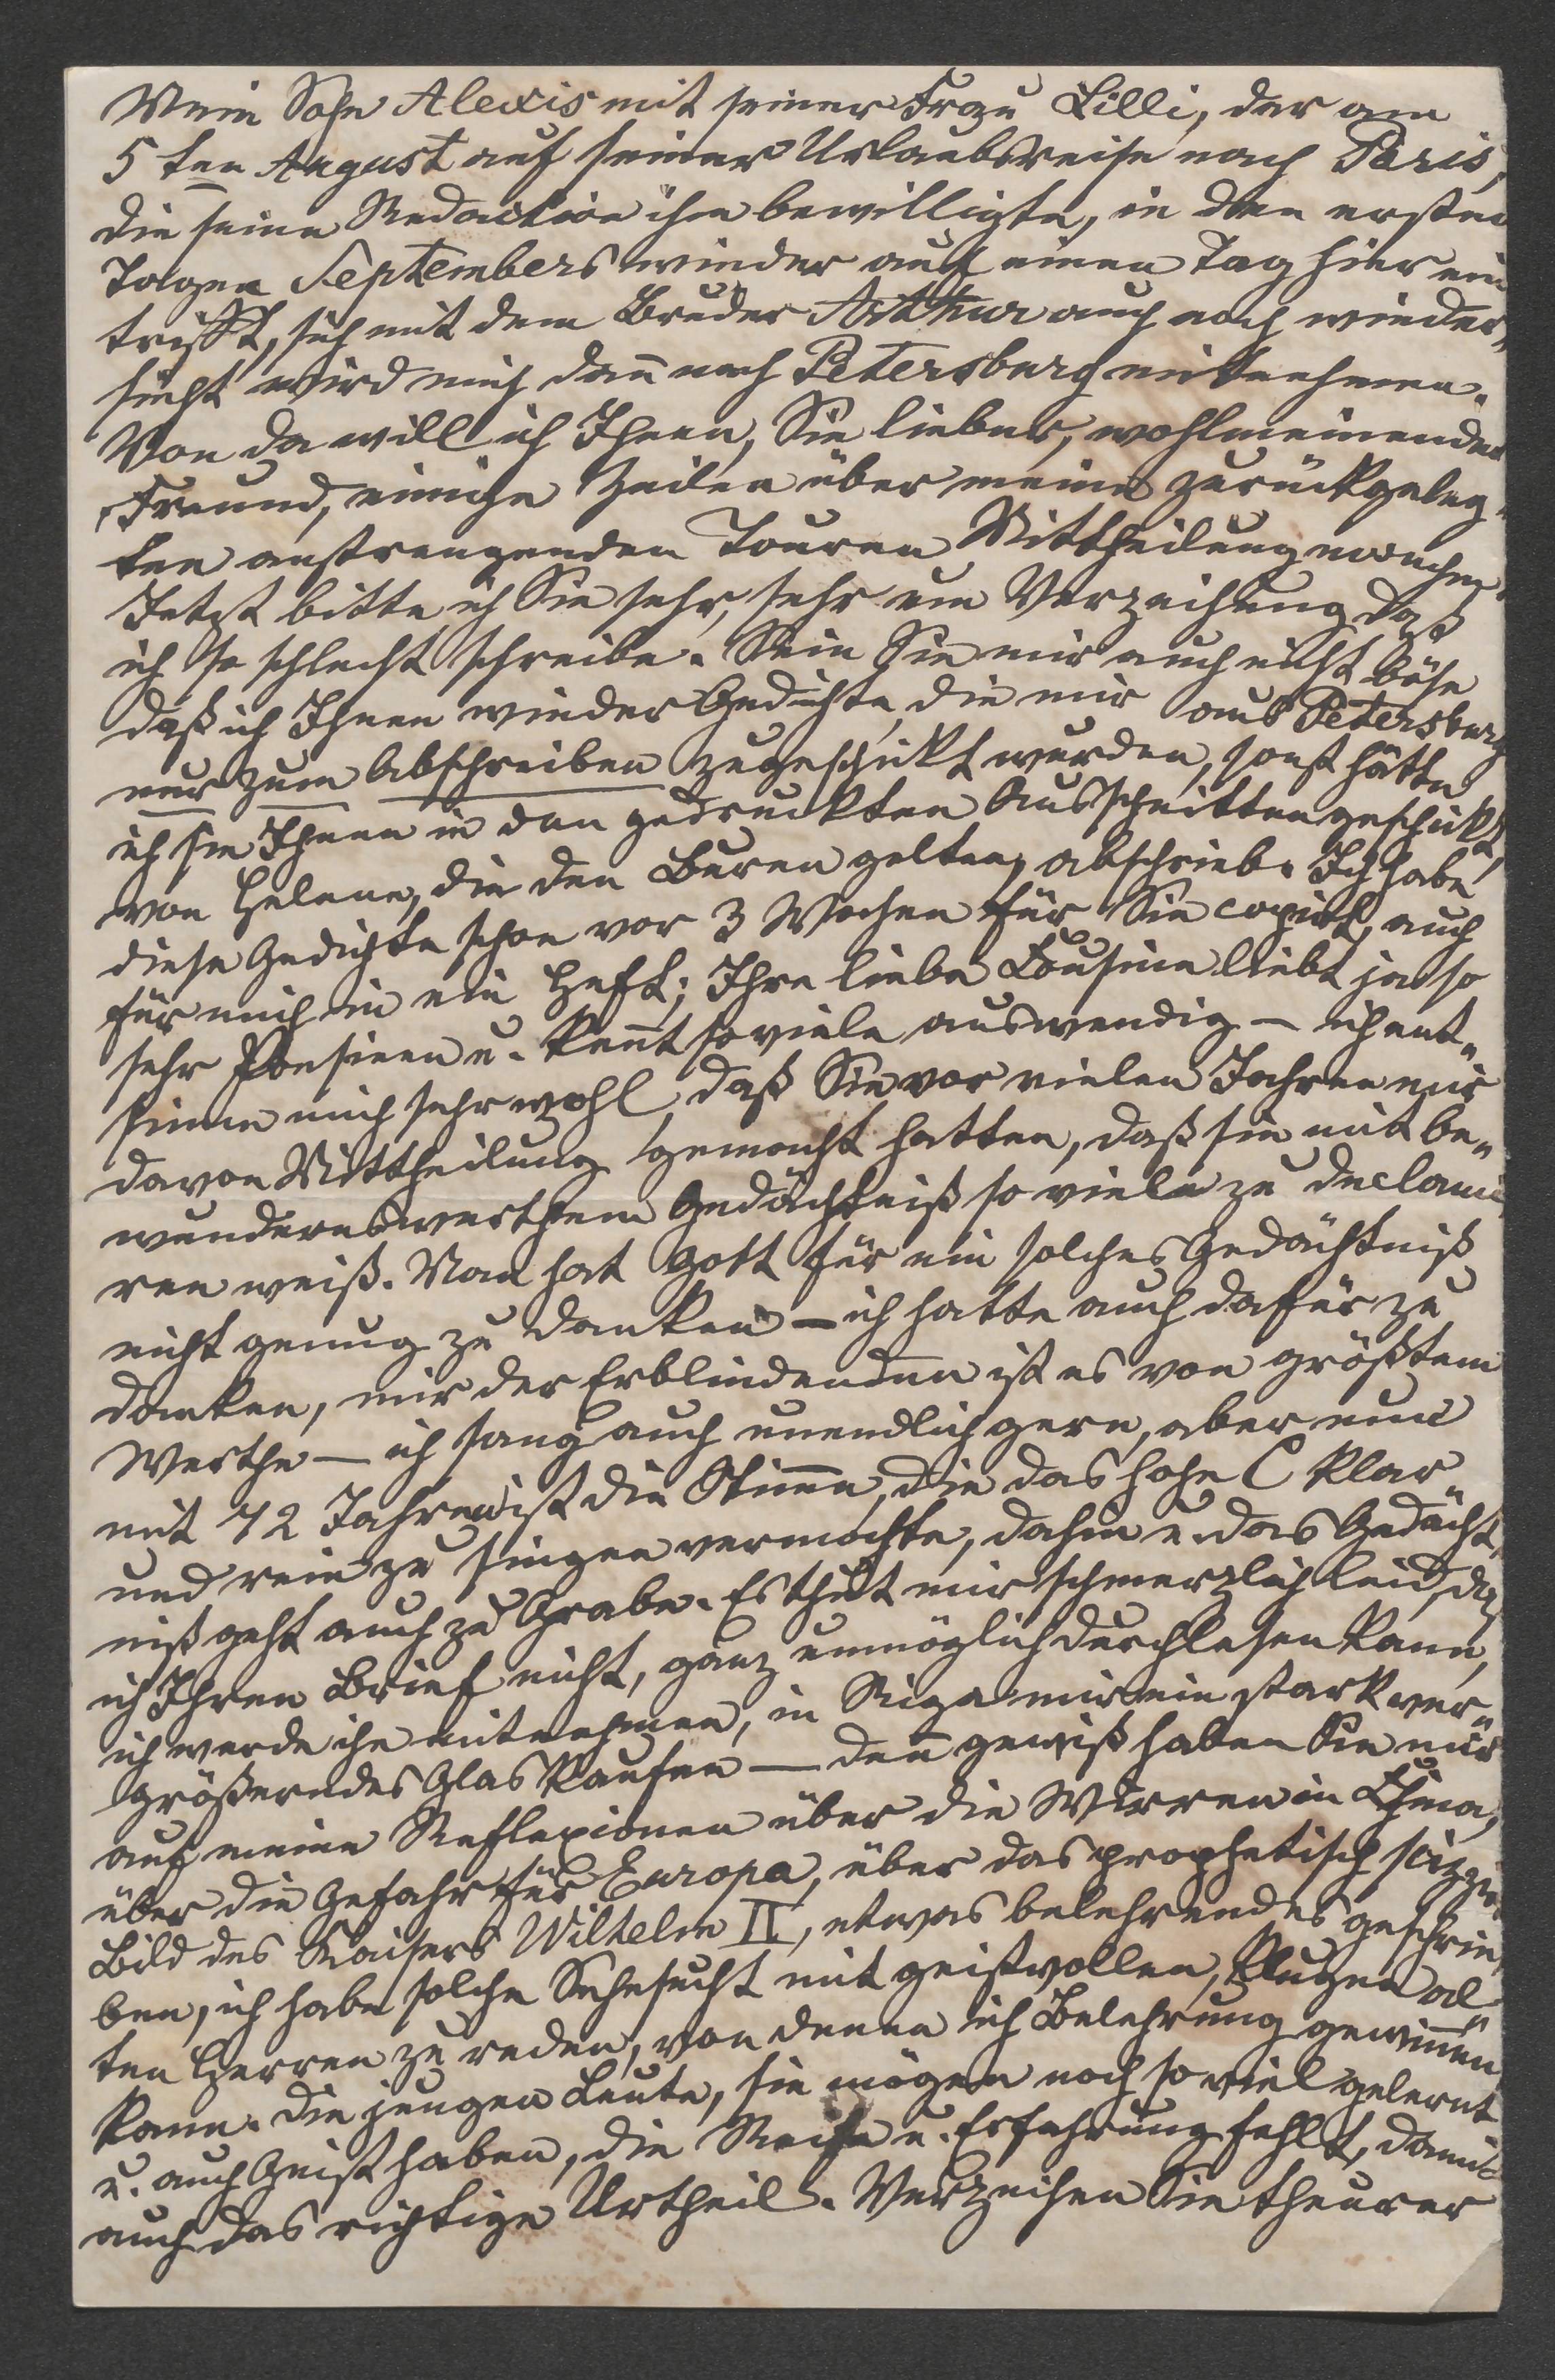 Mein Sohn Alexis mit seiner Frau Lilli, der am
5ten August auf seiner Urlaubsreise nach Paris,
die seine Redaction ihm bewilligte, in den ersten
Tagen Septembers wieder auf einen Tag hier ein
trifft, sich mit dem Bruder Arthur auch noch wieder„
sieht wird mich dañ nach Petersburg mitnehmen.
Von da will ich Ihnen, Sie lieber, wohlmeinender
Freund, einige Zeilen über meine zurückgeleg„
ten anstrengenden Touren Mittheilung machen.
Jetzt bitte ich Sie sehr, sehr um Verzeihung daß
ich so schlecht schreibe. Sein Sie mir auch nicht böse
daß ich Ihnen wieder Gedichte, die mir aus Petersburg
nur zum Abschreiben zugeschickt wurden, sonst hätte
ich sie Ihnen in den gedruckten Ausschnitten geschickt,
von Helene, die den Buren gelten, abschrieb. Ich habe
diese Gedichte schon vor 3 Wochen für Sie copirt, auch
für mich in ein Heft; Ihre liebe Cousine liebt ja so
sehr Poesieen u. keñt so viele auswendig – ich ent„
sinne mich sehr wohl, daß Sie vor vielen Jahren mir
davon Mittheilung gemacht hatten, daß sie mit be„
wundernswerthem Gedächtniß so viele zu declami
ren weiß. Man hat Gott für ein solches Gedächtniß
nicht genug zu danken – ich hatte auch dafür zu
danken, mir der Erblindenden ist es von größtem
Werthe – ich sang auch unendlich gern, aber nun
mit 72 Jahren ist die Stimme, die das hohe C klar
und rein zu singen vermochte, dahin u. das Gedächt„
niß geht auch zu Grabe. Es thut mir schmerzlich leid, daß
ich Ihren Brief nicht, ganz unmöglich durchlesen kann,
ich werde ihn mitnehmen, in Riga mir ein stark ver„
größerndes Glas kaufen – deñ gewiß haben Sie mir
auf meine Reflexionen über die Wirren in China,
über die Gefahr für Europa, über das prophetisch skizzir.
Bild des Kaisers Wilhelm II, etwas belehrendes geschrie
ben, ich habe solche Sehnsucht mit geistvollen, klugen al„
ten Herren zu reden, von denen ich Belehrung gewiñen
kann. Die jungen Leute, sie mögen noch so viel gelernt
u. auch Geist haben, die Reife u. Erfahrung fehlt, damit
auch das richtige Urtheil. Verzeihen Sie theurer